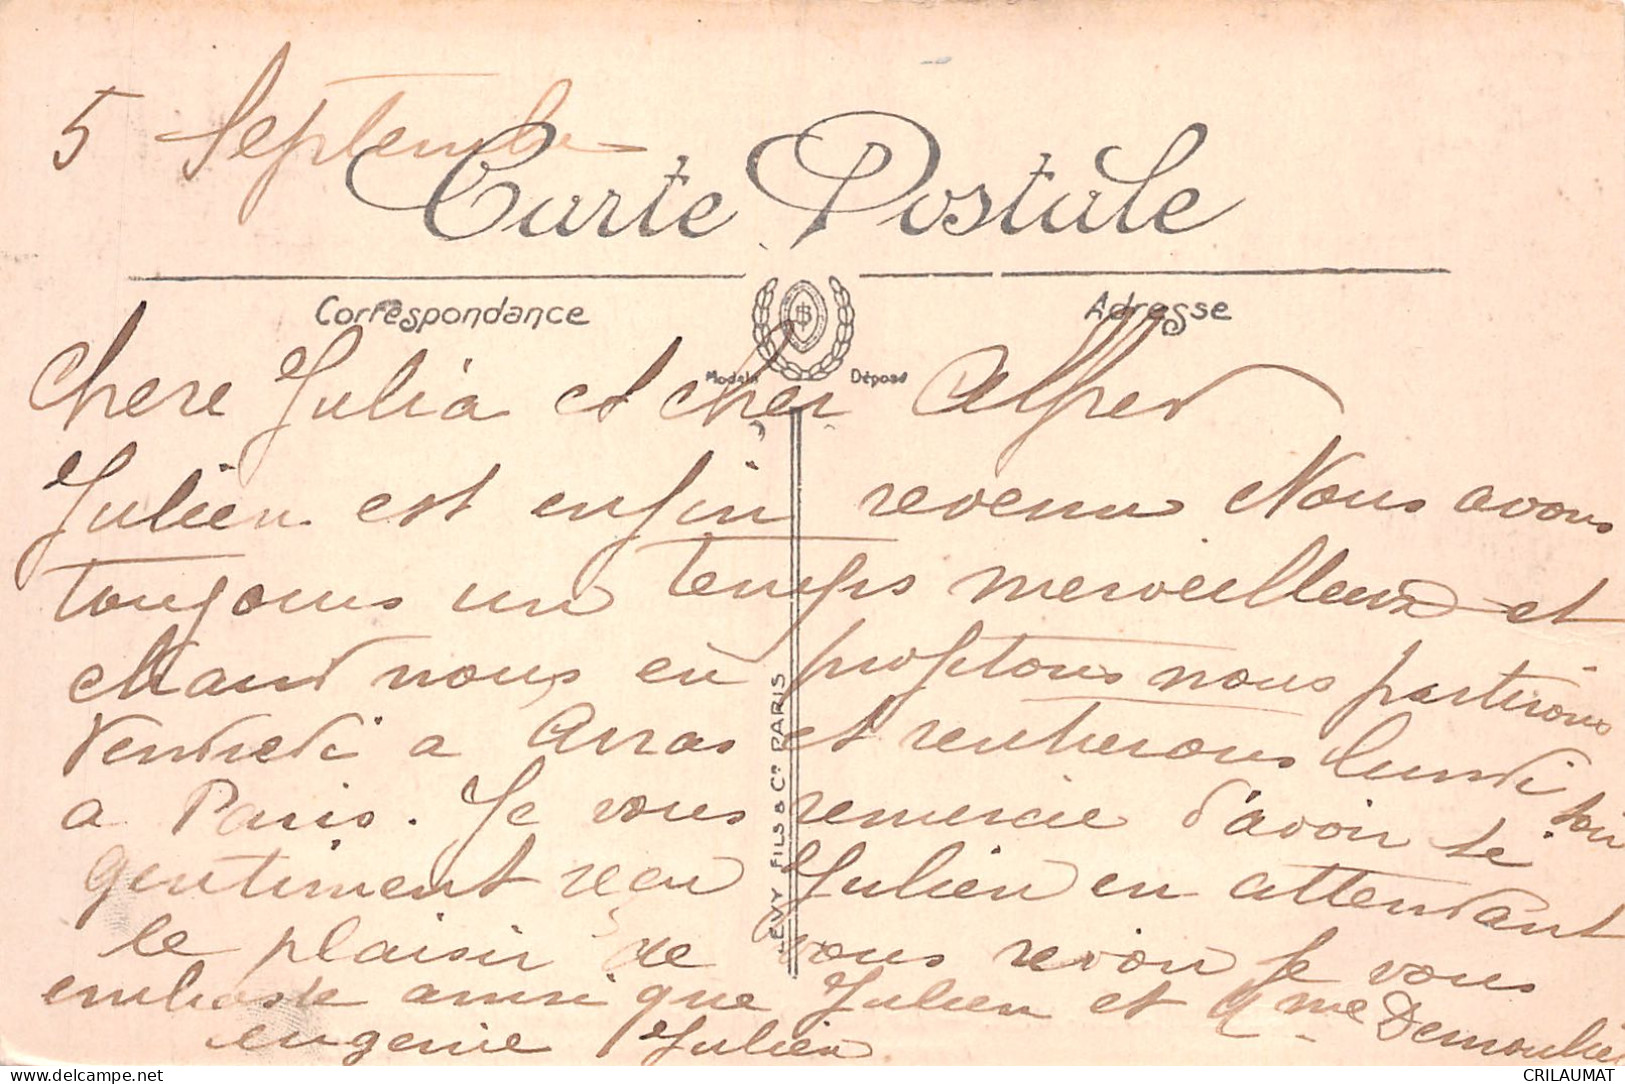 5 Septembre
Carte Postale
Correspondance
Adresse
Modèle Déposé
Chere Julia et cher Alfred
Julien est enfin revenu Nous avons
toujours un temps merveilleux et
chaud nous en profitons nous partirons
Vendredi a Arras et rentrerons lundi soir
a Paris. Je vous remercie d'avoir si
gentiment reçu Julien en attendant
le plaisir de vous revoir je vous
embrasse ainsi que Julien et Mme Demoulin
eugenie Julien
LEVY FILS & Cie PARIS
delcampe.net
CRILAUMAT